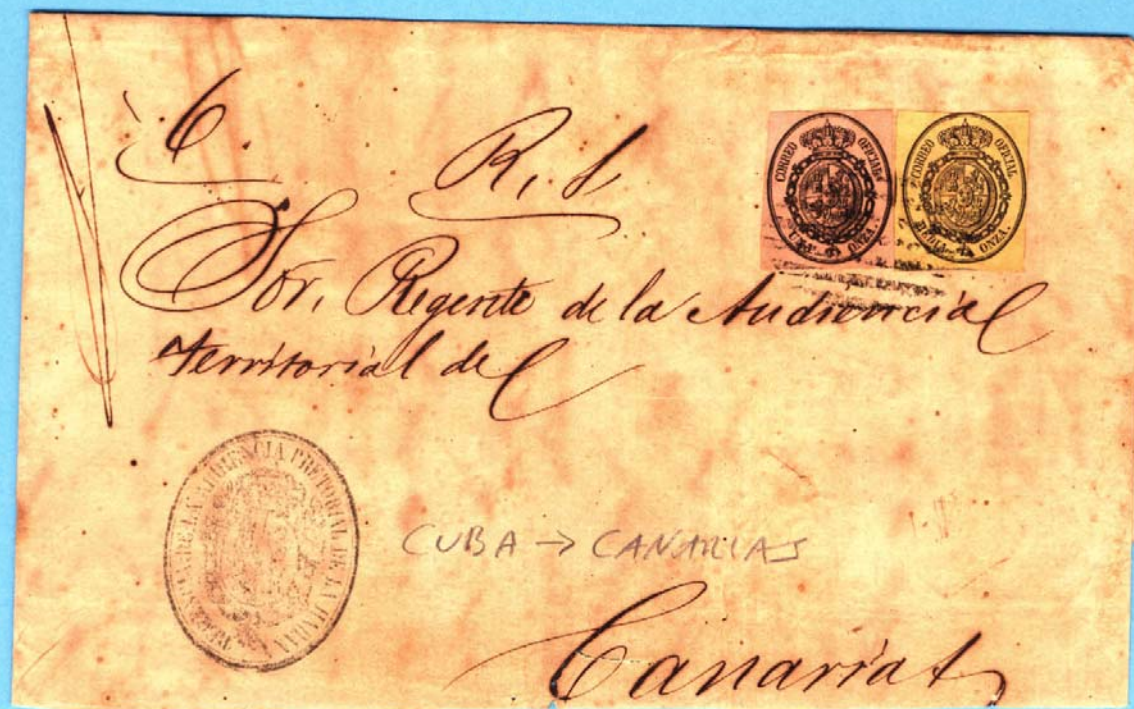 6.
R. S.
CORREO OFICIAL
UNA ONZA.
CORREO OFICIAL
MEDIA ONZA.
Sor. Regente de la Audiencia
territorial de
REGENCIA DE LA AUDIENCIA PRETORIAL DE LA HABANA
CUBA → CANARIAS
Canarias